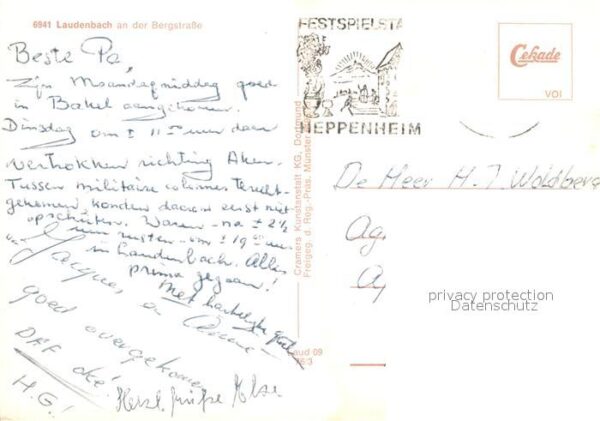 6941 Laudenbach an der Bergstraße
Beste Pa,
Zijn Maandagmiddag goed
in Bakel aangekomen.
Dinsdag om ± 11 uur daar
vertrokken richting Aken.
Tussen militaire colonnes terecht-
gekomen konden daarom eerst niet
opschieten. Waren na ± 2½
uur rusten om ± 19 uur
in Laudenbach. Alles
prima gegaan!
Met hartelijke
Jacques en
goed overgekomen
DAF oké!
H.G!
Herzl. Grüße Else
Cramers Kunstanstalt KG, Dortmund
Freigeg. d. Reg.-Präs. Münster
aud 09
FESTSPIELSTA
HEPPENHEIM
Cekade
VOI
De Heer H. J. Woldberg
Ag.
A,
privacy protection
Datenschutz